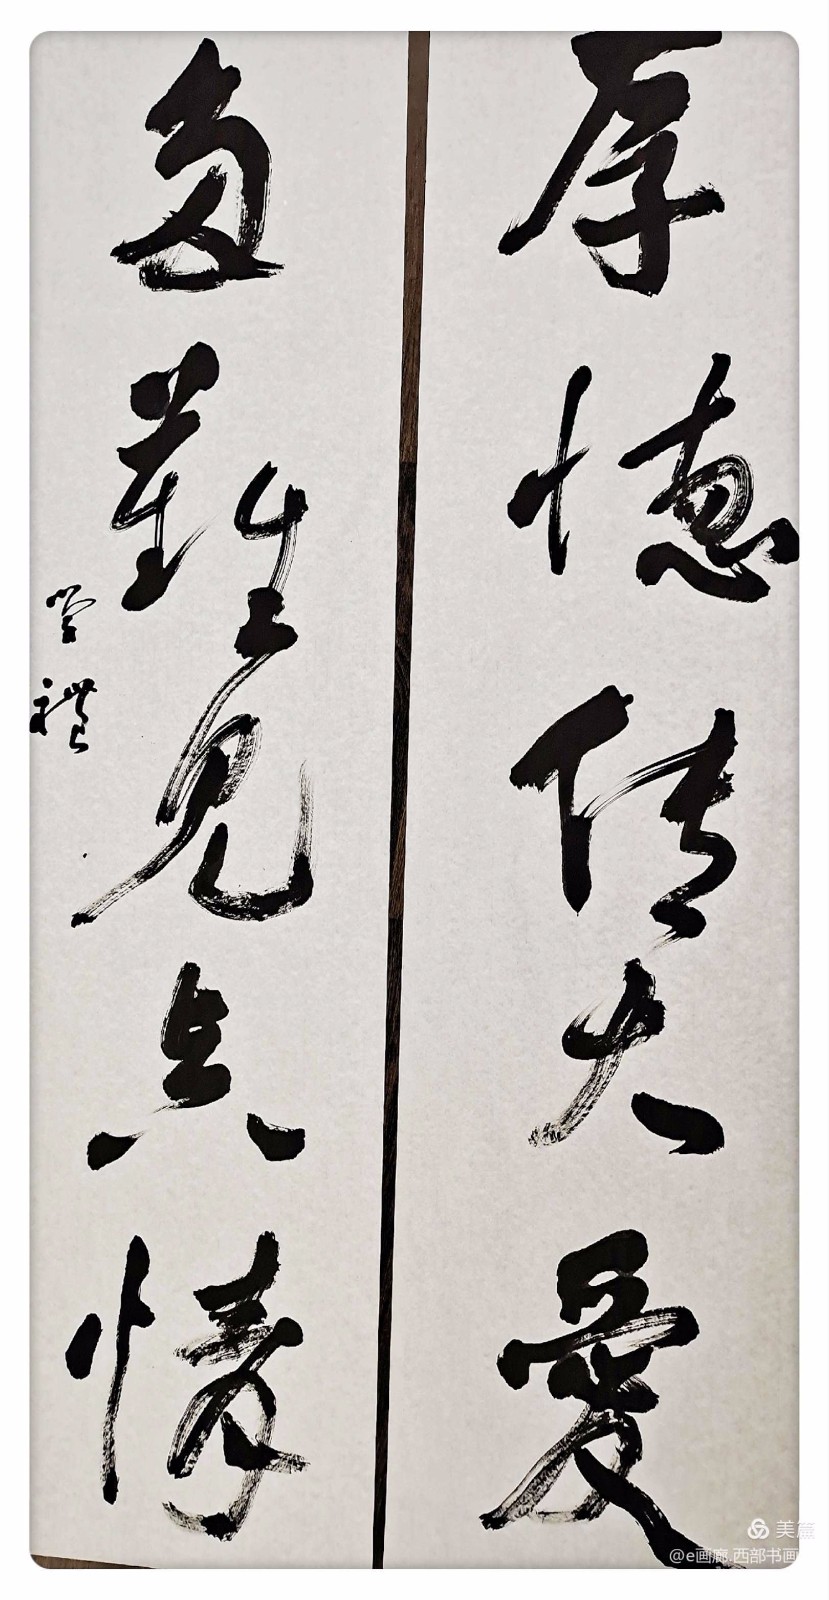 厚德传大爱
多難见真情
学礼
美篇
@e画廊.西部书画